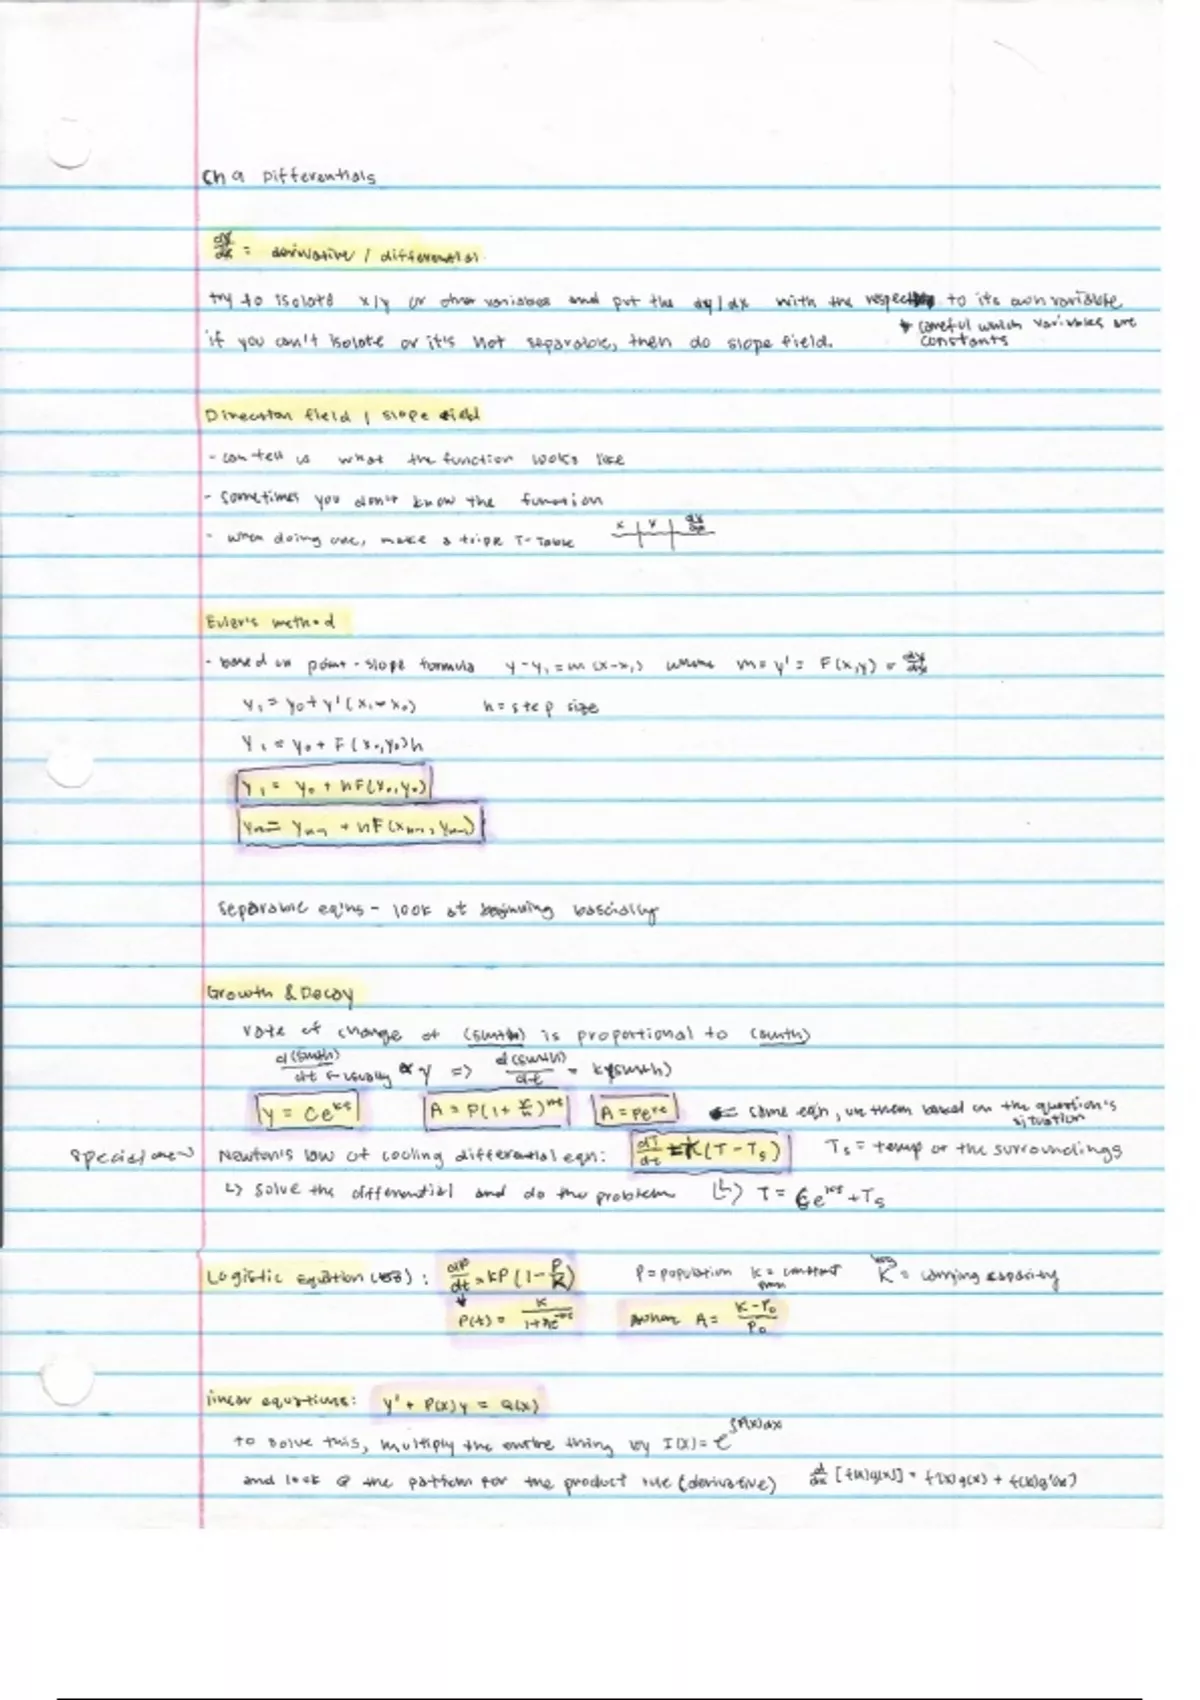 Ch 9 Differentials
dy/dx = derivative / differential.
try to isolate x/y or other variables and put the dy/dx with the respect to its own variable
↳ careful which variables are
constants
if you can't isolate or it's not separable, then do slope field.
Direction field / slope field
- can tell us what the function looks like
- sometimes you don't know the function
- when doing one, make a triple T-Table x | y | dy/dx
Euler's method
- based on point-slope formula y-y₁=m(x-x₁) where m=y'= F(x,y) = dy/dx
y₁=y₀+y'(x₁-x₀) h=step size
y₁=y₀+F(x₀,y₀)h
y₁= y₀ + hF(x₀,y₀)
yₙ= yₙ₋₁ + hF(xₙ₋₁, yₙ₋₁)
separable eq'ns - look at beginning bascially
Growth & Decay
rate of change of (smth) is proportional to (smth)
d(smth)/dt ← usually ∝ y => d(smth)/dt = k(smth)
y = Ce^kt A = P(1+r/n)^nt A = Pe^rt <= same eq'n, use them based on the question's
situation
special one → Newton's law of cooling differential eqn: dT/dt = k(T-Ts) Ts = temp of the surroundings
↳ solve the differential and do the problem ↳ T = Ce^kt + Ts
Logistic equation: dP/dt = kP(1-P/K) P=population k = constant K = carrying capacity
P(t) = K/(1+Ae^-kt) where A = (K-P₀)/P₀
linear equations: y' + P(x)y = Q(x)
to solve this, multiply the entire thing by I(x)= e^∫P(x)dx
and look @ the pattern for the product rule (derivative) d/dx [f(x)g(x)] = f'(x)g(x) + f(x)g'(x)